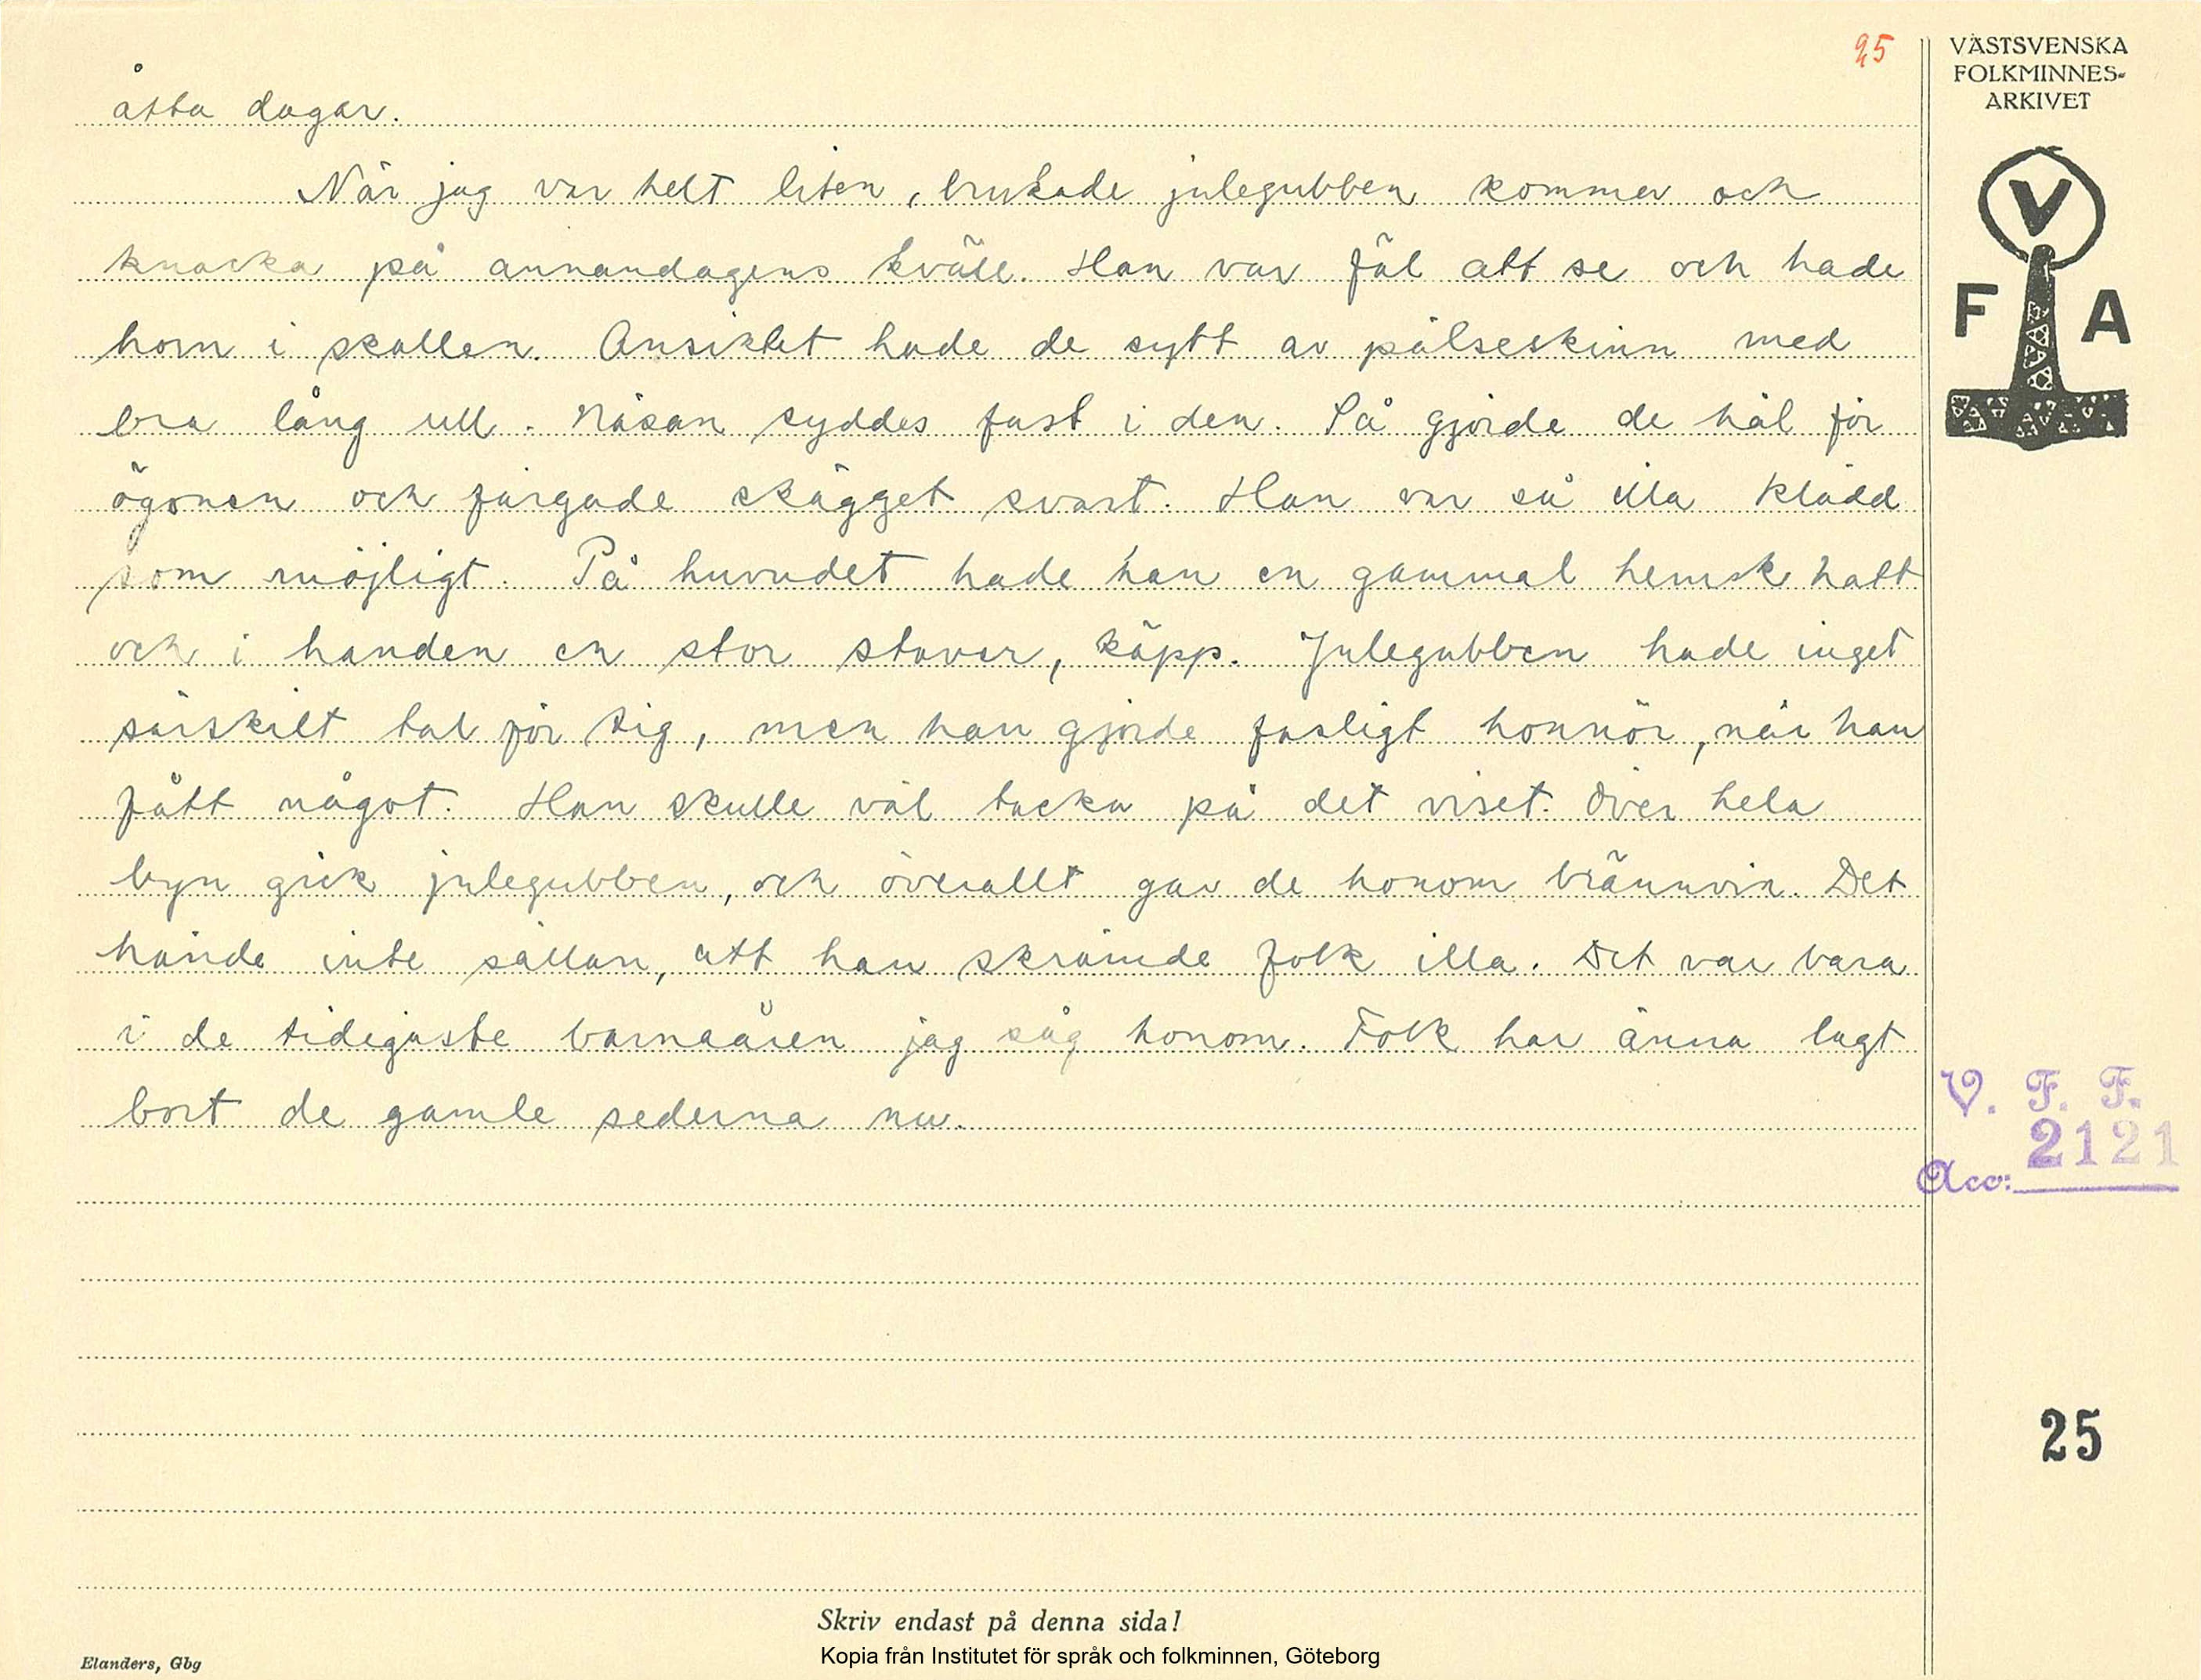 25
VÄSTSVENSKA
FOLKMINNES-
ARKIVET
V
F A
åtta dagar.
När jag var helt liten, brukade julegubben kommer och
knacka på annandagens kväll. Han var fäl att se och hade
horn i skallen. Ansiktet hade de sytt av pälseskinn med
bra lång ull. Näsan syddes fast i den. Så gjorde de hål för
ögonen och färgade skägget svart. Han var så illa klädd
som möjligt. På huvudet hade han en gammal hemsk hatt
och i handen en stor staver, käpp. Julegubben hade inget
särskilt tal för sig, men han gjorde fasligt honnör, när han
fått något. Han skulle väl tacka på det viset. Över hela
byn gick julegubben, och överallt gav de honom brännvin. Det
hände inte sällan, att han skrämde folk illa. Det var bara
i de tidigaste barnaåren jag såg honom. Folk har änna lagt
bort de gamle sederna nu.
V. F. F.
2121
Acc:
25
Skriv endast på denna sida!
Kopia från Institutet för språk och folkminnen, Göteborg
Elanders, Gbg